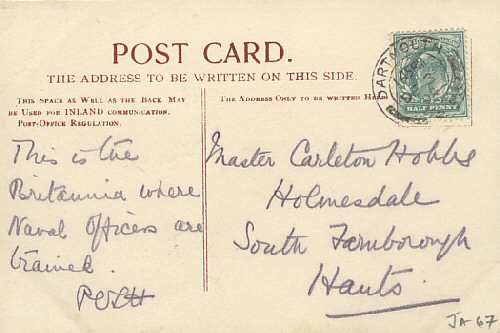 POST CARD.
THE ADDRESS TO BE WRITTEN ON THIS SIDE.
THIS SPACE AS WELL AS THE BACK MAY
BE USED FOR INLAND COMMUNICATION.
POST-OFFICE REGULATION.
This is the
Britannia where
Naval Officers are
trained.
THE ADDRESS ONLY TO BE WRITTEN
Master Carleton Hobbs
Holmesdale
South Farnborough
Hants.
DARTMOUTH
HALF PENNY
JA-67